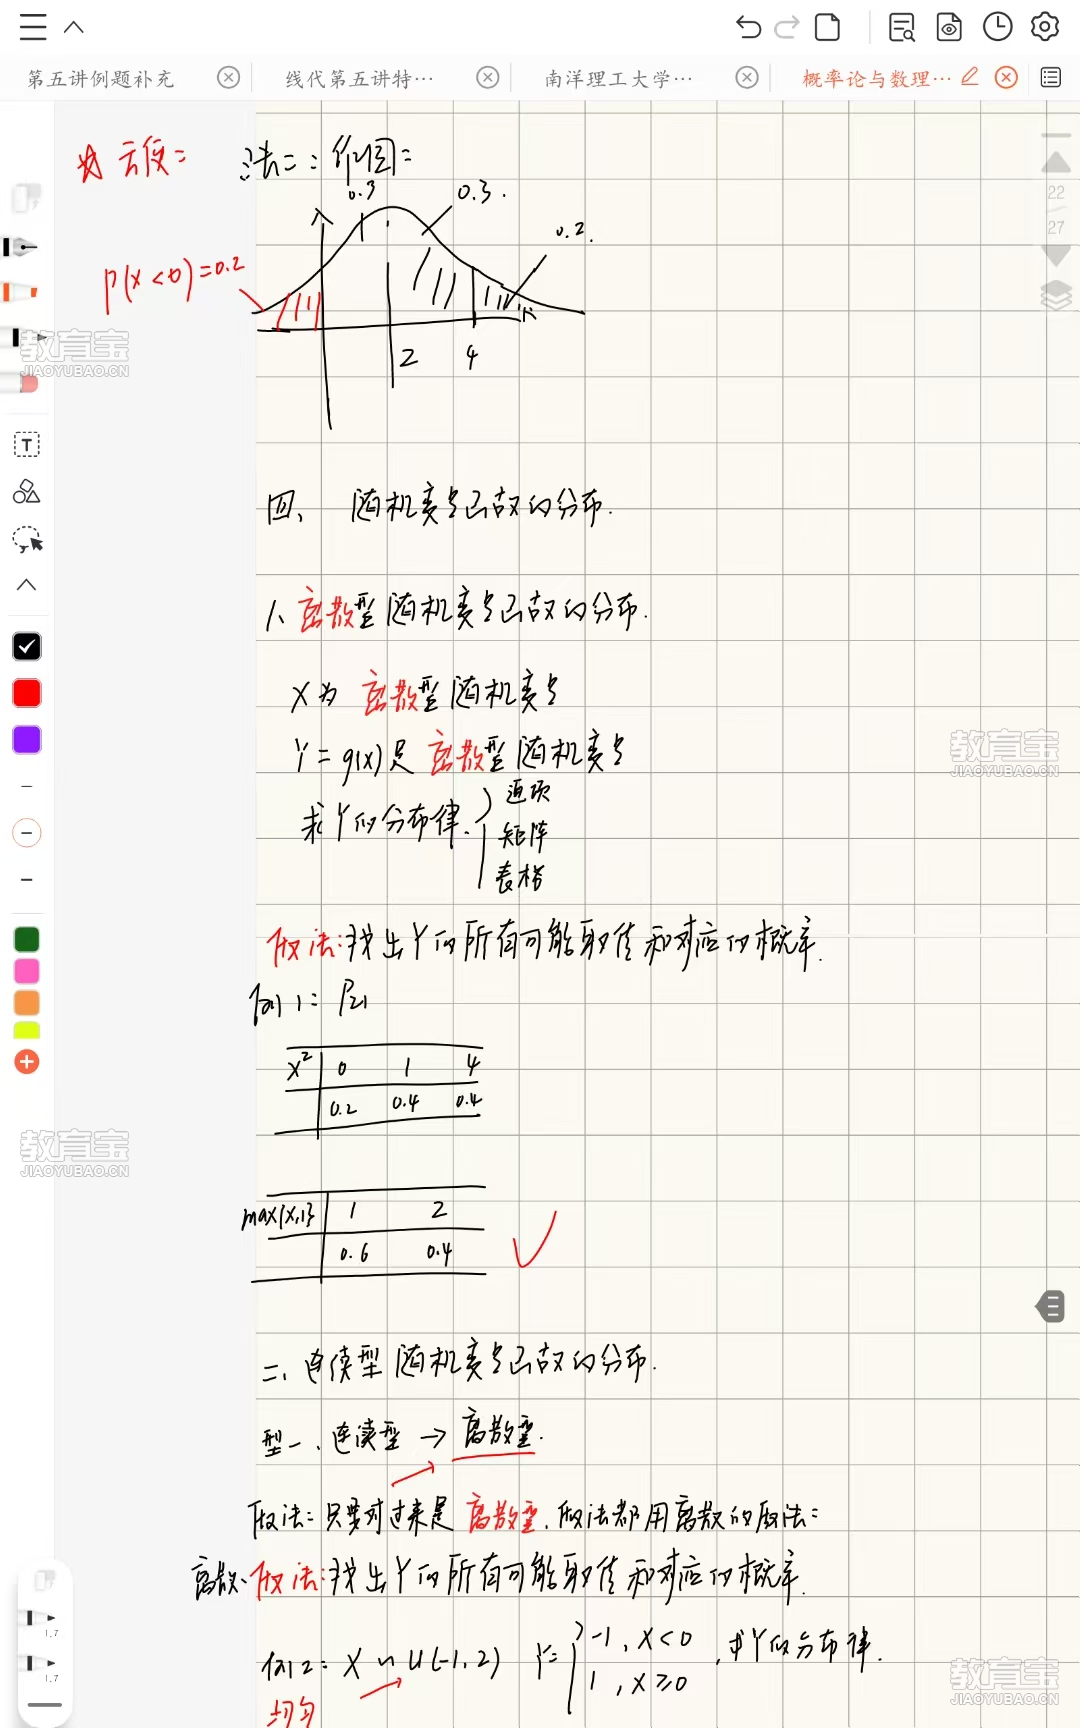 第五讲例题补充 线代第五讲特… 南洋理工大学… 概率论与数理…
22
27
法二:作图:
0.3
0.3.
0.2.
P(X<0)=0.2
2 4
四、随机变量函数的分布.
1、离散型随机变量函数的分布.
X为 离散型随机变量
Y=g(x)是离散型随机变量
求Y的分布律.
逐项
矩阵
表格
做法:找出Y的所有可能取值和对应的概率.
例1:
X² 0 1 4
0.2 0.4 0.4
max{X,1} 1 2
0.6 0.4
二、连续型随机变量函数的分布.
型一、连续型→离散型.
做法:只要对过来是离散型.做法都用离散的做法:
离散.做法:找出Y的所有可能取值和对应的概率.
例2:X~U(-1,2) Y= -1,X<0 ,求Y的分布律.
1,X≥0
均匀
教育宝
JIAOYUBAO.CN
教育宝
JIAOYUBAO.CN
教育宝
JIAOYUBAO.CN
教育宝
JIAOYUBAO.CN
T
1.7
1.7